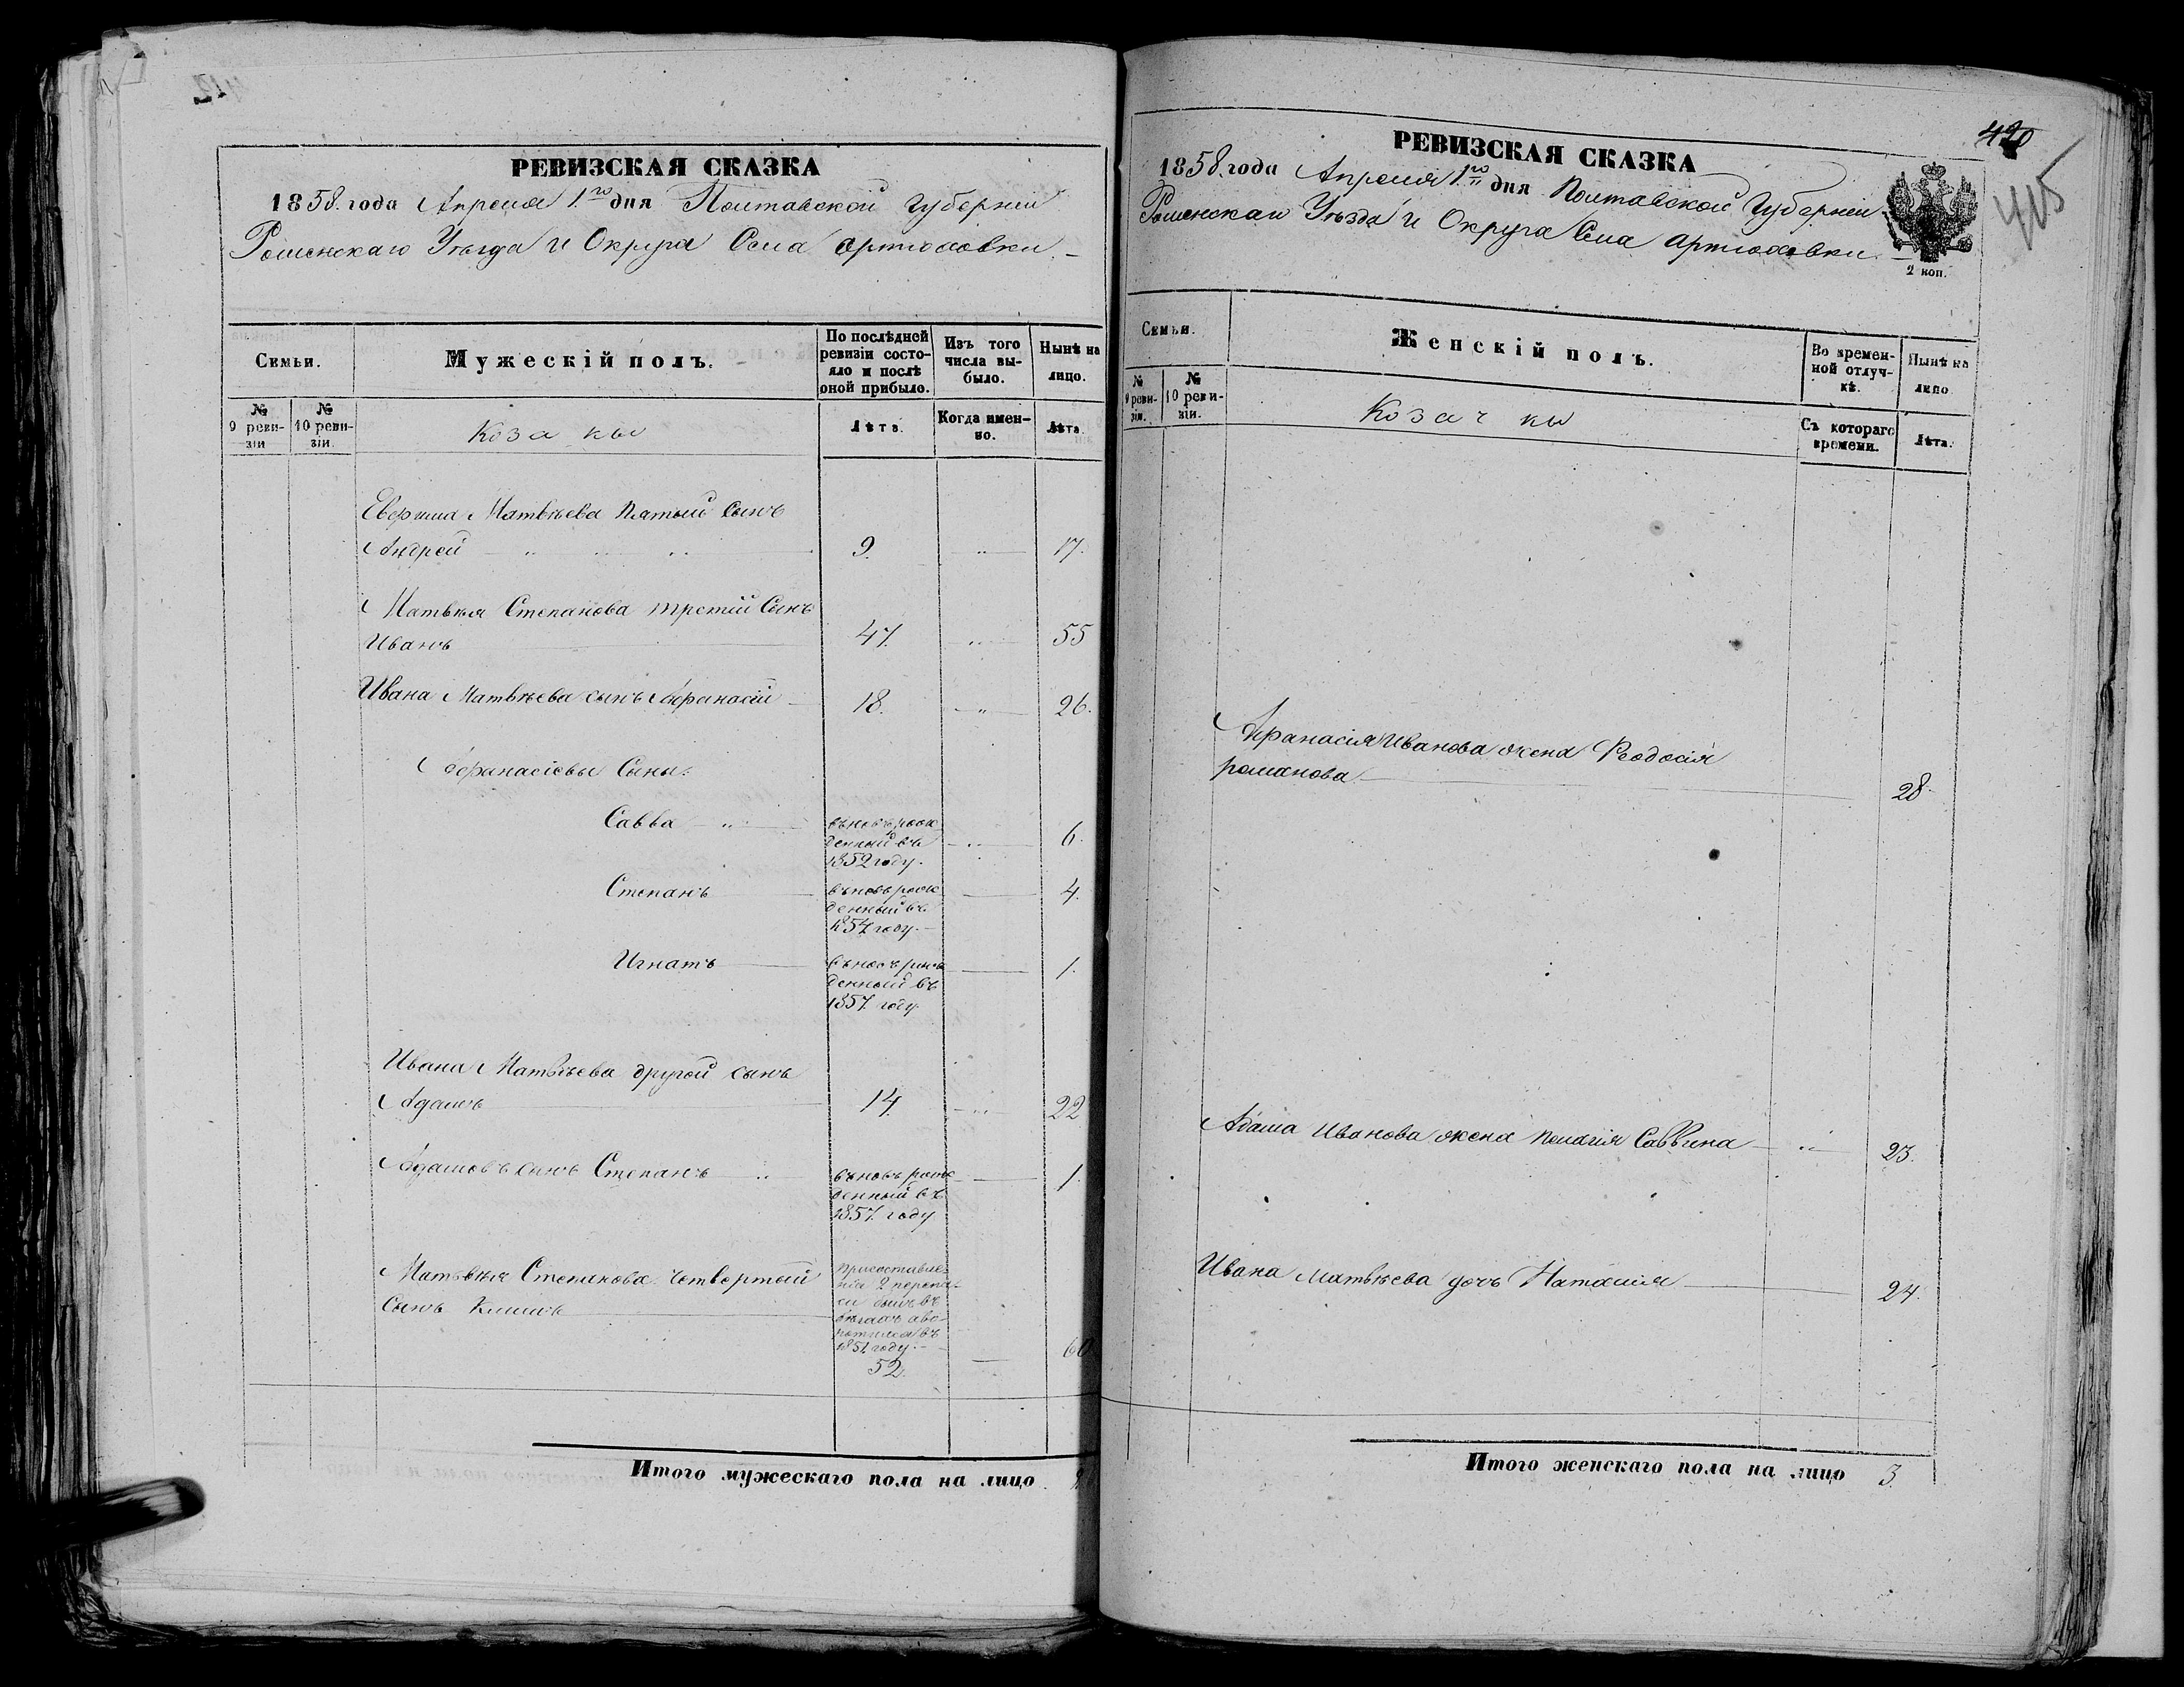 РЕВИЗСКАЯ СКАЗКА
1858. года Апреля 1.го дня Полтавской Губернии
Роменскаго Уъзда и Округа Села Артюховки.
Семьи.
Мужескій полъ.
По послѣдней ревизіи состо-
яло и послѣ
оной прибыло.
Изъ того
числа вы-
было.
Нынѣ на
лицо.
№
9 реви-
зіи
№
10 реви-
зіи.
Козакы
Лѣта.
Когда имен-
но.
Лѣта
Матвѣева пятый сынъ
Андрей 9. 17.
Матвѣя Степанова третій Сынъ
Иванъ 47. 55
Ивана Матвѣева сынъ Афанасій 18. 26.
Афанасіевы Сыны:
Савва 6.
вновь рож
денный въ
1852 году.
Степанъ 4.
вновь рож
денный въ
году.
Игнатъ 1.
вновь рож
денный въ
1857. году
Ивана Матвѣева другой сынъ
Адамъ 14. 22
Адамовъ сынъ Степанъ 1.
вновь рож
денный въ
1857. году
Матвѣя Степанова четвертый
Сынъ Климъ 60
при составле-
ніи перепи-
си былъ въ
бѣгахъ
въ
1851 году.
52.
Итого мужескаго пола на лицо
420
415
РЕВИЗСКАЯ СКАЗКА
1858. года Апреля 1.го дня Полтавской Губернии
Роменскаго Уѣзда и Округа Села Артюховки.
2 коп.
Семьи.
Женскій полъ.
Во времен-
ной отлуч-
кѣ.
Нынѣ на
лицо
№
9 реви-
зіи.
№
10 реви-
зіи.
Козачкы
Съ котораго
времени.
Лѣта.
Афанасія Иванова жена Феодосія
романова 28.
Адама Иванова жена Пелагія Саввина 23.
Ивана Матвѣева дочь Наталія 24.
Итого женскаго пола на лицо 3.